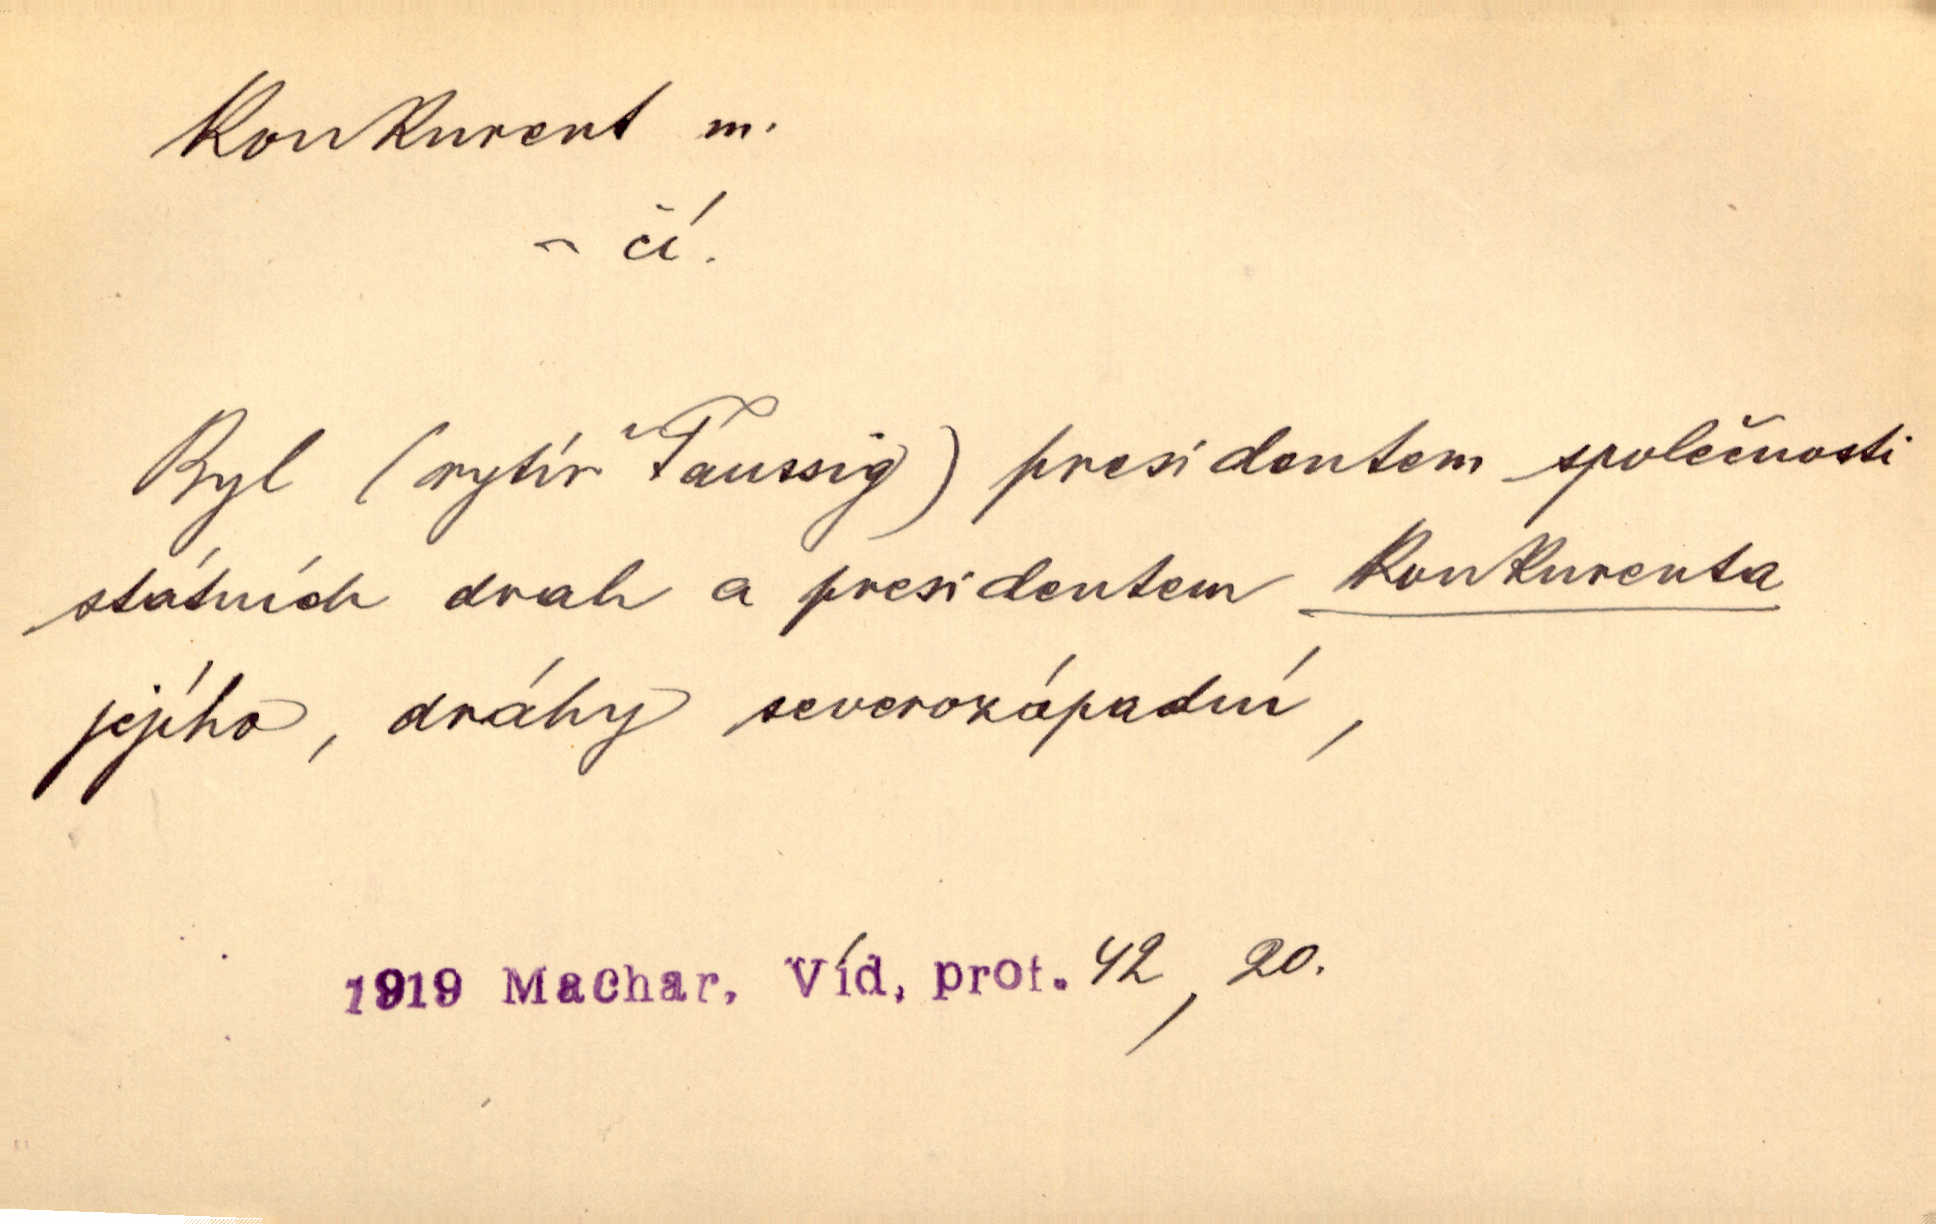 Konkurent m.
~ čí.
Byl (rytíř Taussig) presidentem společnosti
státních drah a presidentem konkurenta
jejího, dráhy severozápadní,
1919 Machar, Víd, prof. 42, 20.